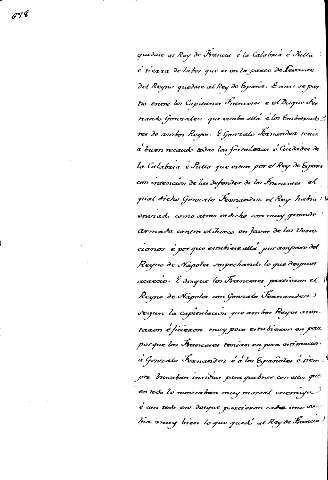 678
quedase al Rey de Francia é la Calabria é Pulla
é tierra de labor que es en la parte de
del Reyno quedase al Rey de España. E ansi se par
tio entre los Capitanes Franceses e el Duque Fer
nando Gonzalez que estaba allá é los Embaxado
res de ambos Reyes. E Gonzalo Fernandez tenia
á buen recaudo todas las fortalezas é Ciudades de
la Calabria é Pulla que estan por el Rey de España
con intencion de las defender de los Franceses el
qual dicho Gonzalo Fernandez el Rey habia
enviado como atras es dicho con muy grande
armada contra el turco en favor de los Vene
cianos é por que estubiese allá por amparo del
Reyno de Napoles sospechando lo que despues
acaecio. E desque los Franceses partieron el
Reyno de Napoles con Gonzalo Fernandez
segun la capitulacion que ambos Reyes asen
taron é ficieron muy poco estubieron en paz
porque los Franceses tenian en poca estima
á Gonzalo Fernandez é á los Españoles é siem
pre buscaban insidias para quebrar con ellos que
en todo lo mostraban muy mortal enemiga
é con todo eso desque partieron cada uno sa
bia muy bien lo que quedó al Rey de Francia